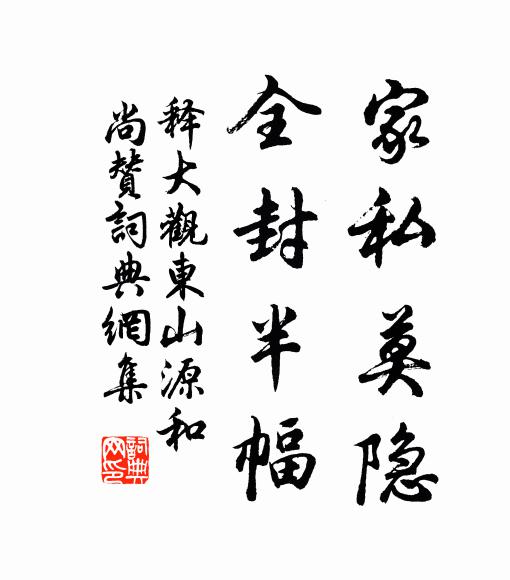 家私莫隐
全封半幅
释大觀東山源和
尚赞詞典網集
詞典网印